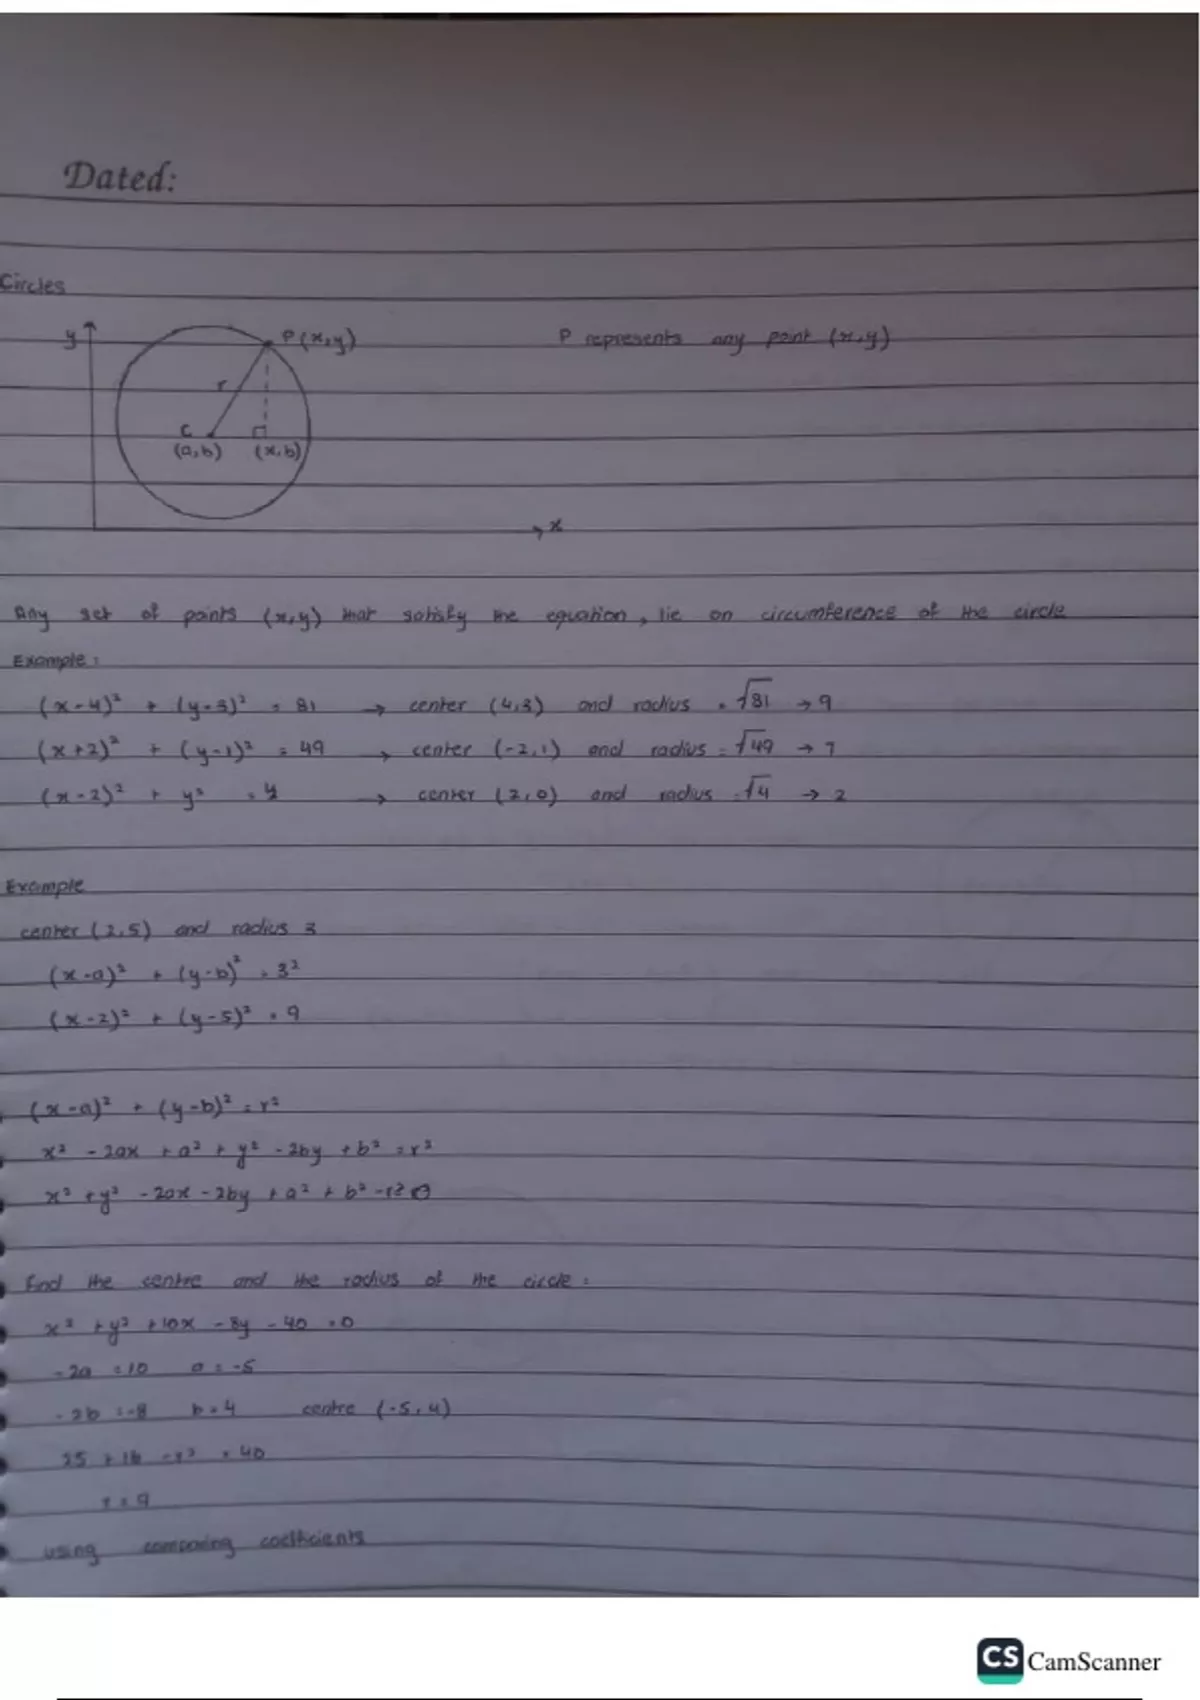 Dated:
Circles
y
P(x,y)
P represents any point (x,y)
r
C
(a,b) (x,b)
x
Any set of points (x,y) that satisfy the equation, lie on circumference of the circle
Example:
(x-4)² + (y-3)² = 81 → center (4,3) and radius = √81 → 9
(x+2)² + (y-1)² = 49 → center (-2,1) and radius = √49 → 7
(x-2)² + y² = 4 → center (2,0) and radius = √4 → 2
Example
center (2,5) and radius 3
(x-a)² + (y-b)² = 3²
(x-2)² + (y-5)² = 9
(x-a)² + (y-b)² = r²
x² - 2ax + a² + y² - 2by + b² = r²
x² + y² - 2ax - 2by + a² + b² - r² = 0
Find the centre and the radius of the circle:
x² + y² + 10x - 8y - 40 = 0
-2a = 10 a = -5
-2b = -8 b = 4 centre (-5,4)
25 + 16 - r² = 40
r = 9
using comparing coefficients
CS CamScanner